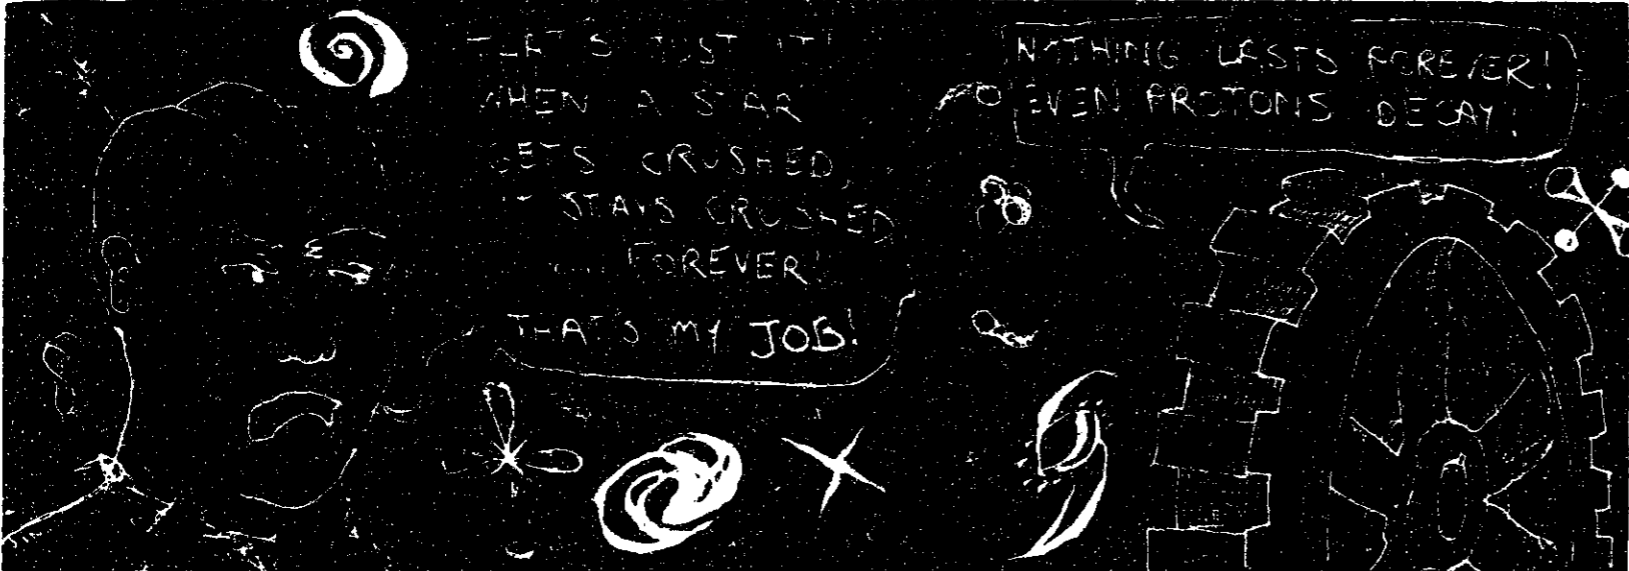 THAT'S JUST IT!
WHEN A STAR
GETS CRUSHED,
IT STAYS CRUSHED
FOREVER!
THAT'S MY JOB!
NOTHING LASTS FOREVER!
EVEN PROTONS DECAY!